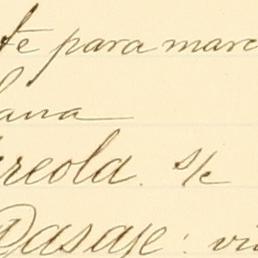 te para marc
lana
reola. s/c
Pasaje: vi